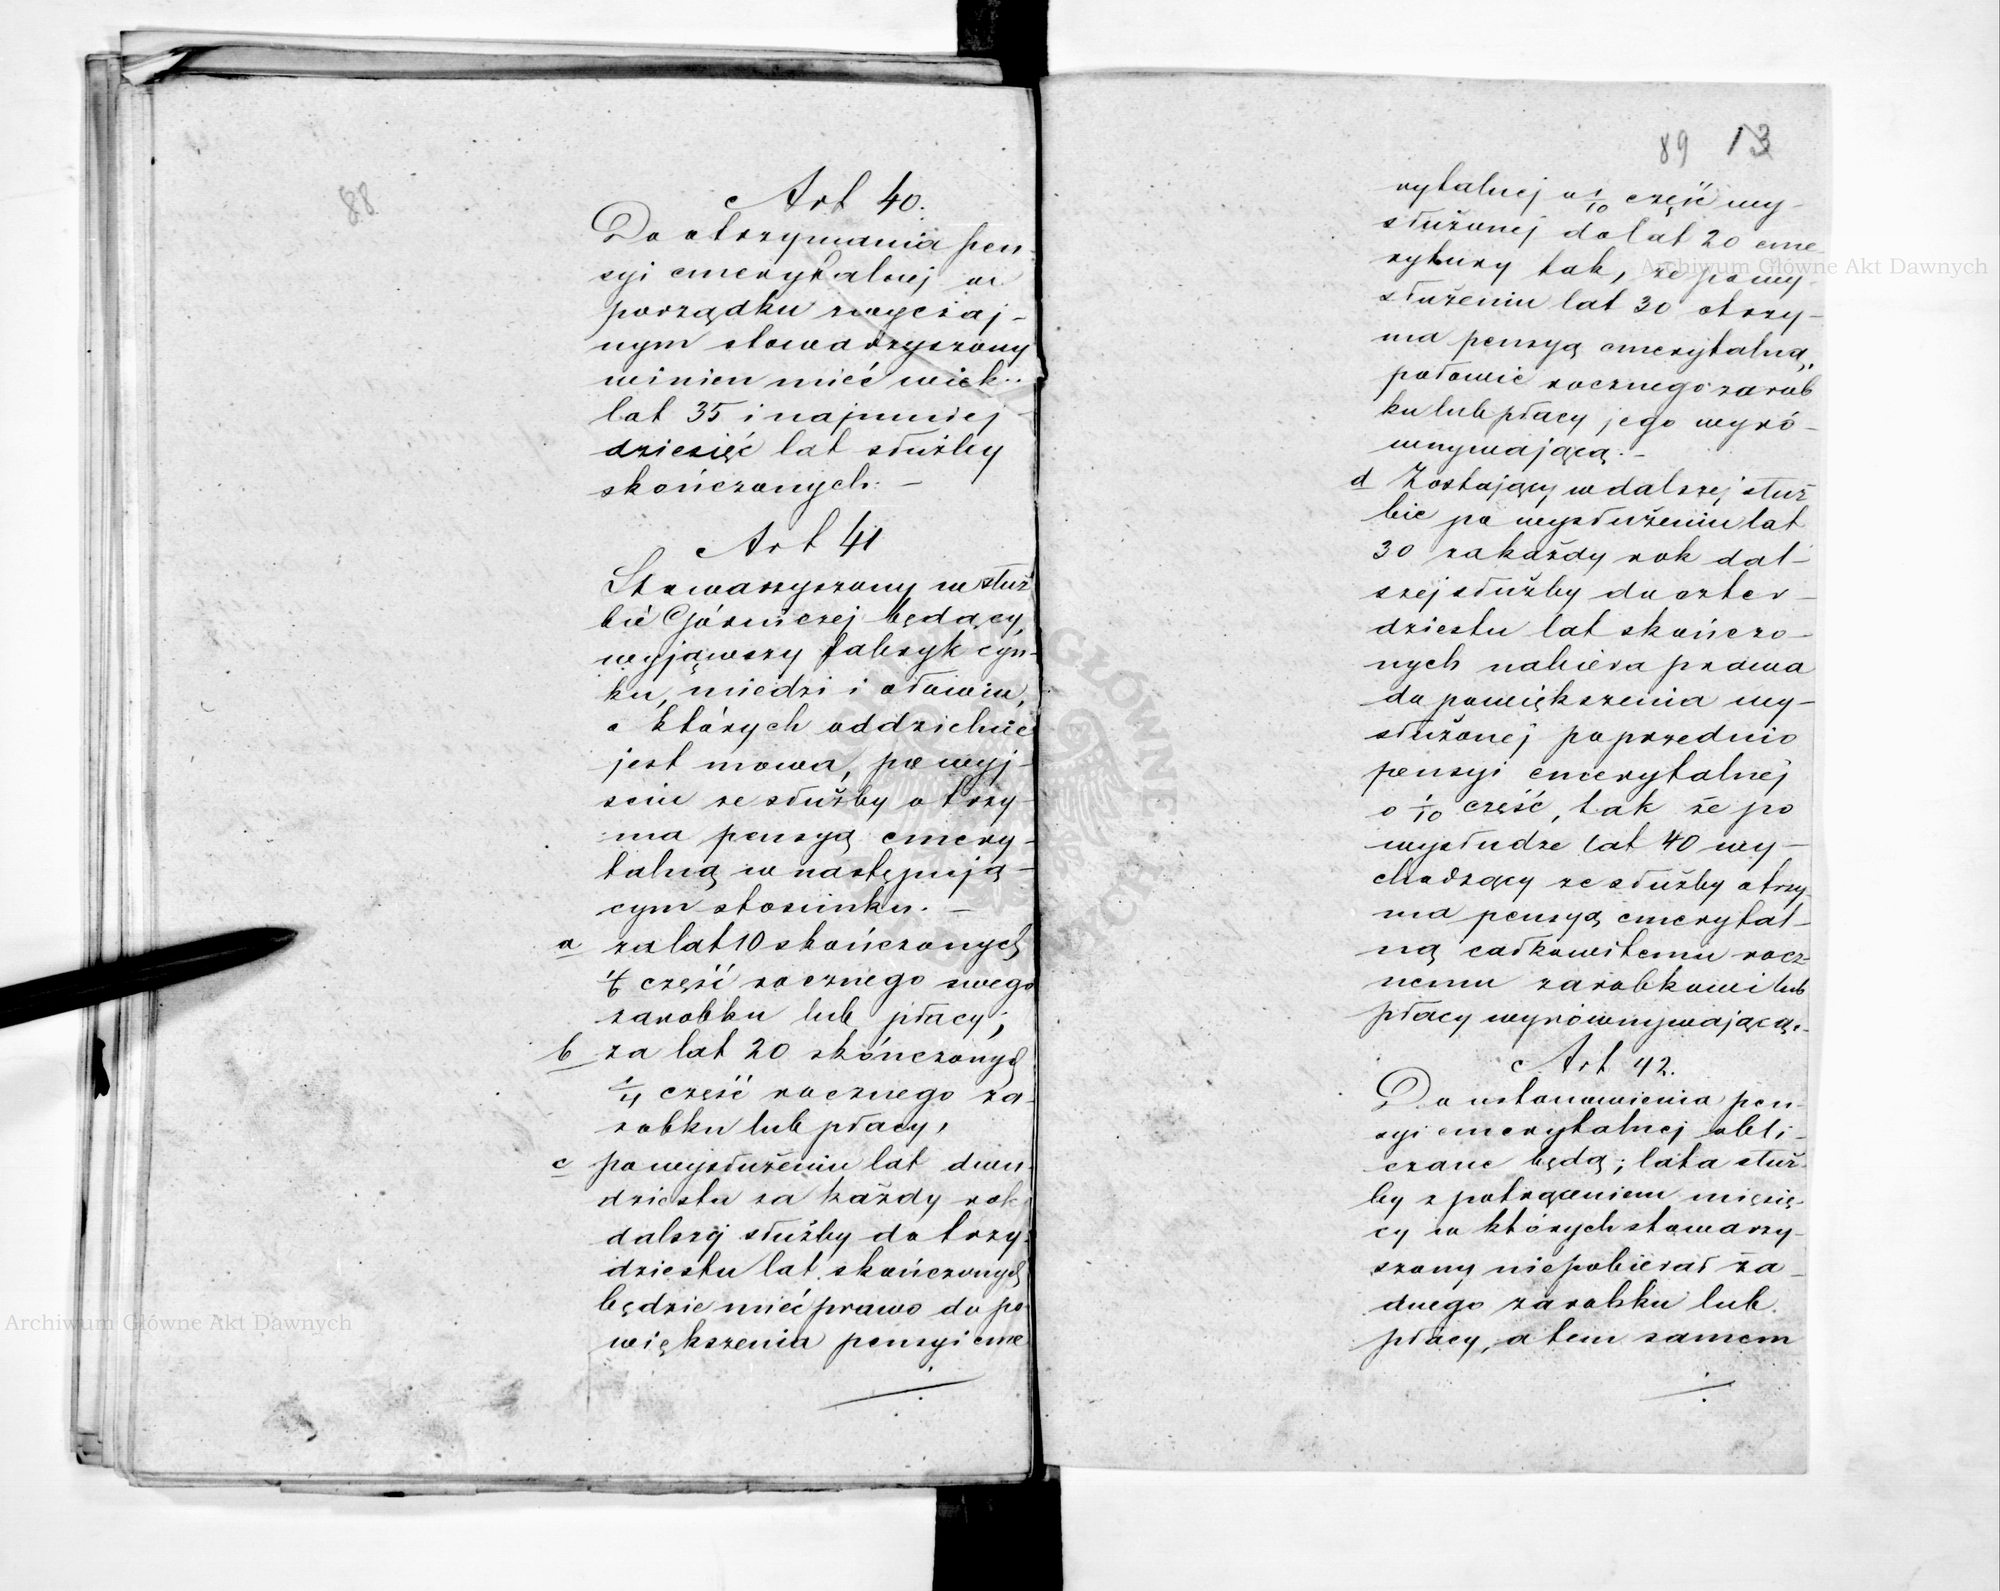 88
Art 40.
Do otrzymania pen-
syi emerytalnej w
porządku zwyczaj-
nym stowarzyszony
winien mieć wiek
lat 35 i najmniej
dziesięć lat służby
skończonych. -
Art 41
Stowarzyszony w służ
bie Górniczej będący,
wyjąwszy fabryk cyn-
ku, miedzi i ołowiu,
o których oddzielnie
jest mowa, po wyj-
sciu ze służby otrzy-
ma pensyą emery-
talną w następują-
cym stosunku. -
a za lat 10 skończonych
1/6 część rocznego swego
zarobku lub płacy;
b za lat 20 skończonych
1/4 część rocznego za-
robku lub płacy,
c po wysłużeniu lat dwu-
dziestu za każdy rok
dalszej służby do trzy-
dziestu lat skończonych
będzie mieć prawo do po
większenia pensyi eme
89 13
rytalnej o 1/10 część wy-
służonej do lat 20 eme
rytury tak, że po wy-
służeniu lat 30 otrzy-
ma pensyą emerytalną,
połowie rocznego zarob
ku lub płacy jego wyró-
wnywającą. -
d Zostający w dalszej służ
bie po wysłużeniu lat
30 za każdy rok dal-
szej służby do czter-
dziestu lat skończo-
nych nabiera prawa
do powiększenia wy-
służonej poprzednio
pensyi emerytalnej
o 1/10 część, tak że po
wysłudze lat 40 wy-
chodzący ze służby otrzy-
ma pensyą emerytal-
ną całkowitemu rocz-
nemu zarobkowi lub
płacy wyrównywającą. -
Art 42.
Do ustanowienia pen-
syi emerytalnej obli-
czane będą; lata służ-
by z potrąceniem miesię-
cy w których stowarzy-
szony niepobierał ża-
dnego zarobku lub
płacy, a tem samem
Archiwum Główne Akt Dawnych
Archiwum Główne Akt Dawnych